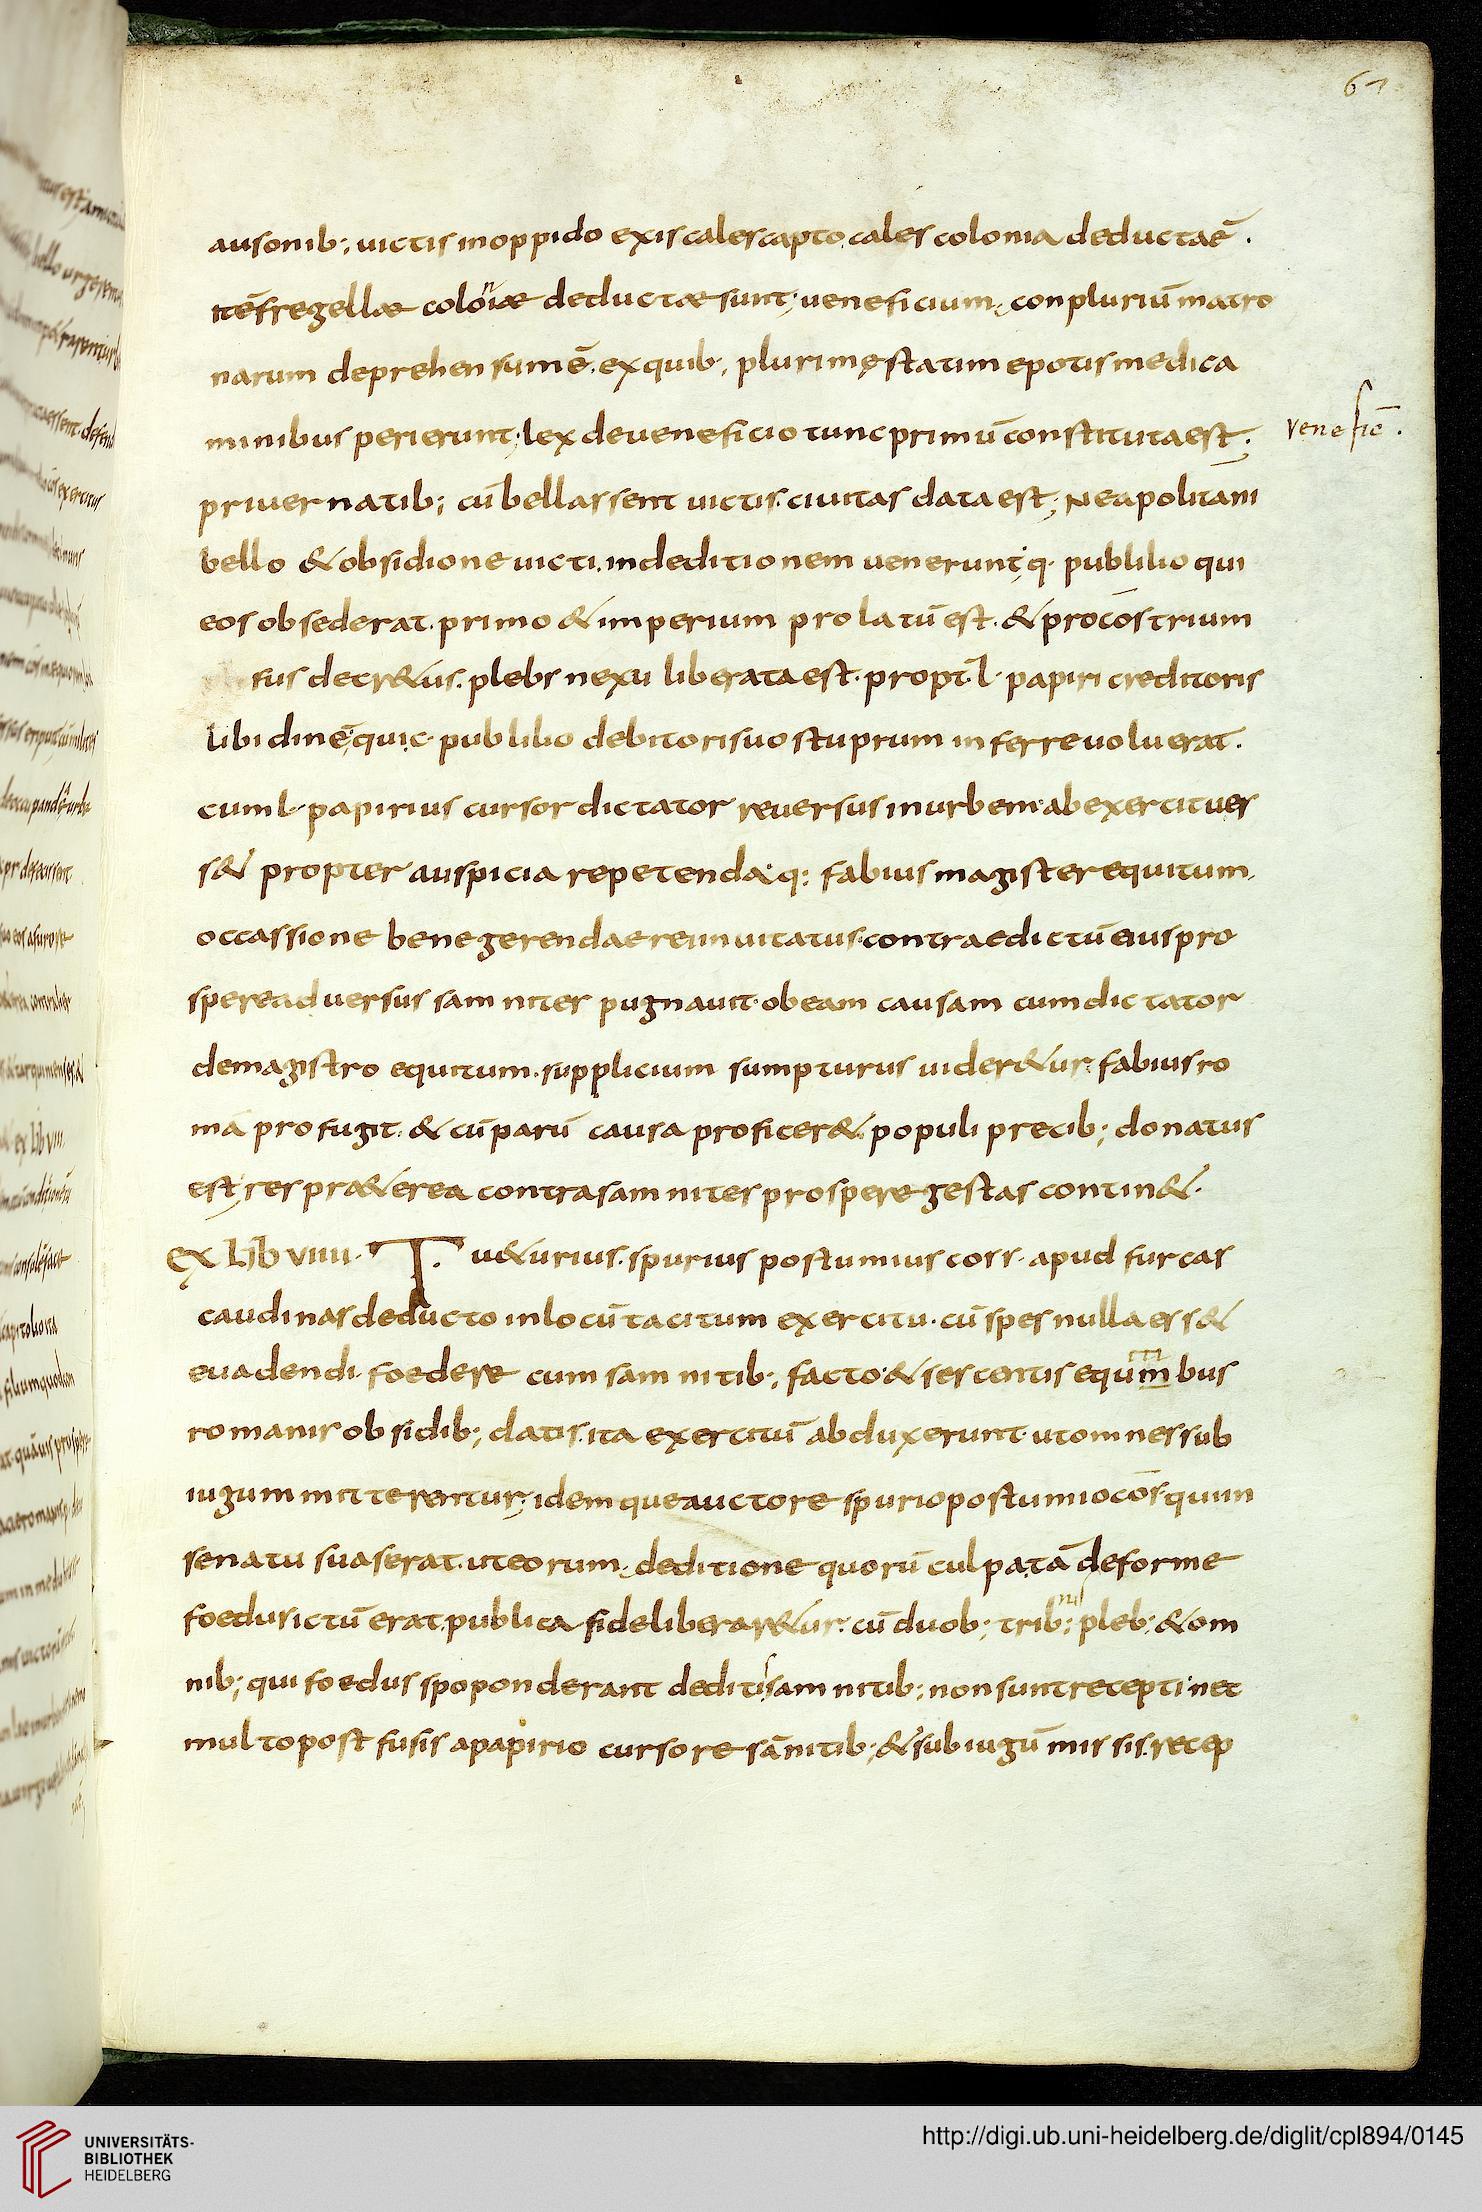 61
ausonib; uictis inoppido exis cales capto. cales colonia deducta ē.
Itē fregellae coloniae deductae sunt; ueneficium, conpluriū matro
narum deprehensum ē. ex quib; plurimę statim epotis medica
minibus perierunt; lex de ueneficio tunc primū constituta est;
venefic̄.
priuernatib; cū bellassent uictis. ciuitas data est; Neapolitani
bello & obsidione uicti. in deditionem uenerunt; q. publilio qui
eos obsederat. primo & imperium prolatū est. & procōs trium
fus decr&us. plebs nexu liberata est. propt. l. papiri creditoris
libidinē, qui c. publilio debitori suo stuprum inferre uoluerat.
cum l. papirius cursor dictator reuersus in urbem ab exercitu es
s& propter auspicia repetenda; q; fabius magister equitum,
occassione bene gerendae rei inuitatus. contra edictū eius pro
spere aduersus samnites pugnauit. ob eam causam cum dictator
de magistro equitum. supplicium sumpturus uider&ur. fabius ro
mā profugit. & cū parū causa proficer&. populi precib; donatus
est; res pra&erea contra samnites prospere gestas contin&.
ex Lib viiii. T. u&urius. spurius postumius coss. apud furcas
caudinas deducto in locū tacitum exercitu. cū spes nulla ess&
euadendi. foedere cum samnitib; facto. & sescentis equm̅bus
romanis obsidib; datis. ita exercitū abduxerunt. ut omnes sub
iugum mitterentur; idemque auctore spurio postumio cōs qui in
senatu suaserat. ut eorum, deditione quorū culpa tā deforme
foedus ictū erat. publica fides liberar&ur. cū duob; trib; pleb; & om
nib; qui foedus spoponderant dediti samnitib; non sunt recepti. nec
multo post fusis a papirio cursore sānitib; & sub iugū missis. recep
UNIVERSITÄTS-
BIBLIOTHEK
HEIDELBERG
http://digi.ub.uni-heidelberg.de/diglit/cpl894/0145